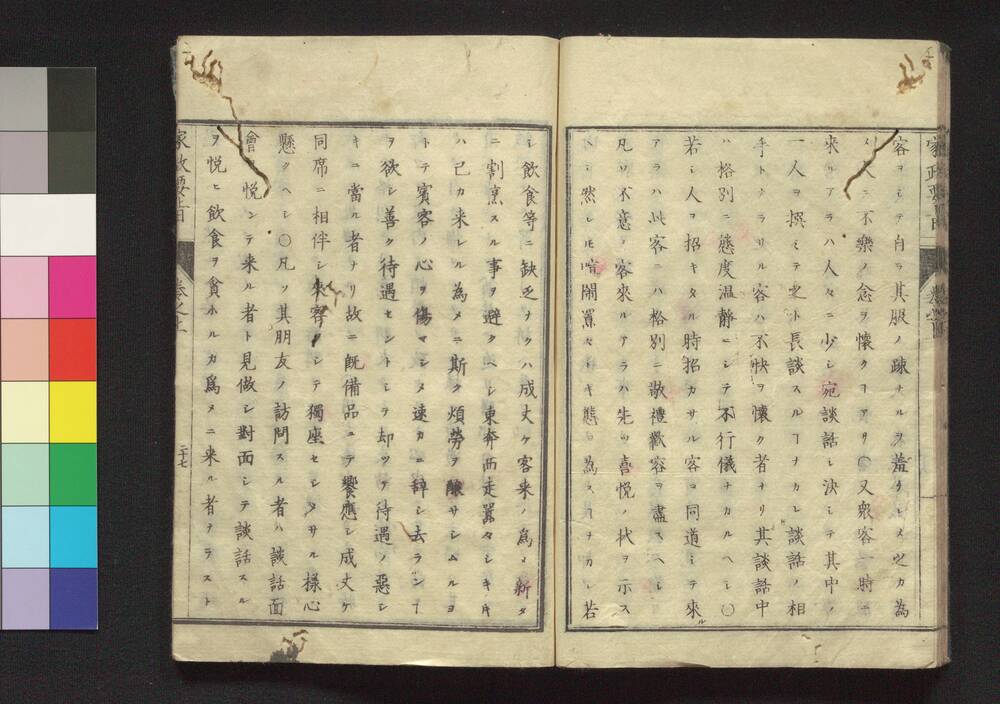 容ヲシテ自ラ其服ノ疎ナルヲ羞タレメ之カ為
メ大ニ不樂ノ念ヲ懐クヿアリ〇又衆客一時ニ
來ルアラハ人々ニ少シ宛談話し決シテ其中ノ
一人ヲ撰ミテ之ト長談スルヿナカレ談話ノ相
手トナラサル客ハ不快ヲ懐ク者ナリ其談話中
ハ格別ニ態度温静ニシテ不行儀ナカルヘシ〇
若シ人ヲ招キタル時招カサル客ヲ同道シテ來ル
アラハ此客ニハ格別ニ敬禮歡容ヲ盡スヘし
凡ソ不意ノ客來ルアラハ先ツ喜悦ノ状ヲ示ス
ヘシ然レ𪜈喧鬧囂々トキ態ヲ為スヿナカレ若
シ飲食等ニ缺乏ナクハ成丈ケ客来ノ為メ新タ
ニ割烹スル事ヲ避クヘシ東奔西走囂々シキキ
ハ己カ来レル為メニ斯ク煩勞ヲ醸サシムルヨ
トテ賓客ノ心ヲ傷マシメ速カニ辞シ去ランヿ
ヲ欲シ善ク待遇セントシテ却ツテ待遇ノ惡シ
キニ當ル者ナリ故ニ既備品ニテ饗應シ成丈ケ
同席ニ相伴シ來客ヲシテ獨座セシメサル樣心
懸クヘシ〇凡ソ其朋友ノ訪問スル者ハ談話面
會ヲ悦ンテ来ル者ト見做シ對面シテ談話スル
ヲ悦ヒ飲食ヲ貪ホルカ爲メニ来ル者ナラスト
家政要旨
卷之上
二十七